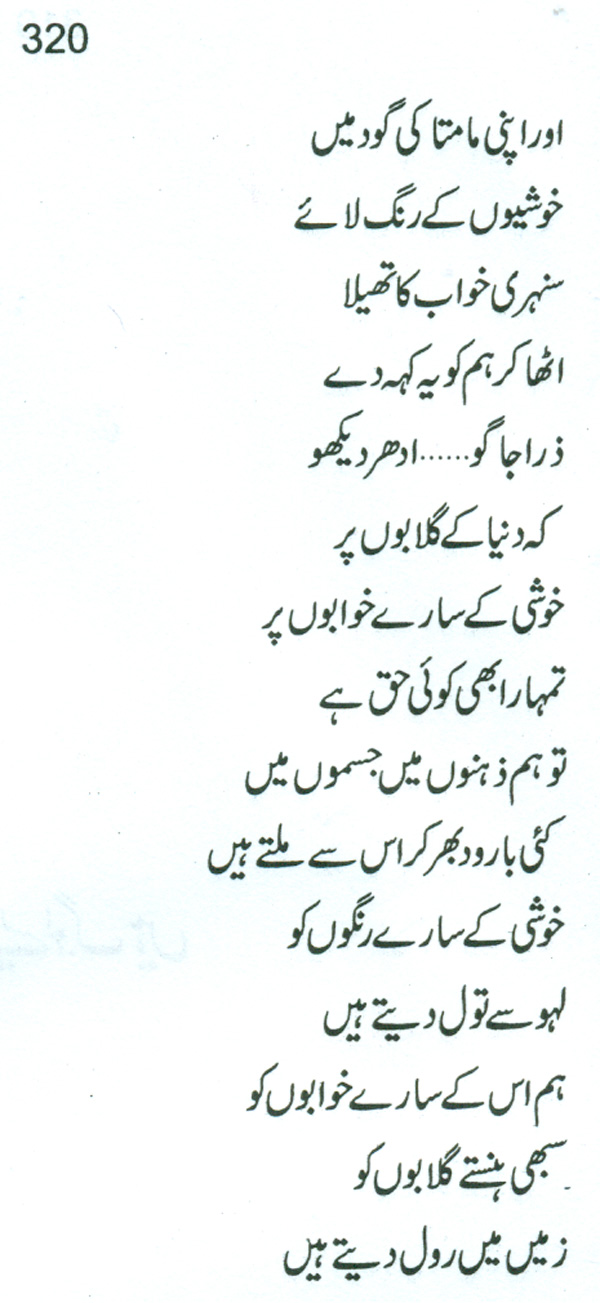 320
اور اپنی مامتا کی گود میں
خوشیوں کے رنگ لائے
سنہری خواب کا تھیلا
اٹھا کر ہم کو یہ کہہ دے
ذرا جاگو......ادھر دیکھو
کہ دنیا کے گلابوں پر
خوشی کے سارے خوابوں پر
تمہارا بھی کوئی حق ہے
تو ہم ذہنوں میں جسموں میں
کئی بارود بھر کر اس سے ملتے ہیں
خوشی کے سارے رنگوں کو
لہو سے تول دیتے ہیں
ہم اس کے سارے خوابوں کو
سبھی ہنستے گلابوں کو
زمیں میں رول دیتے ہیں